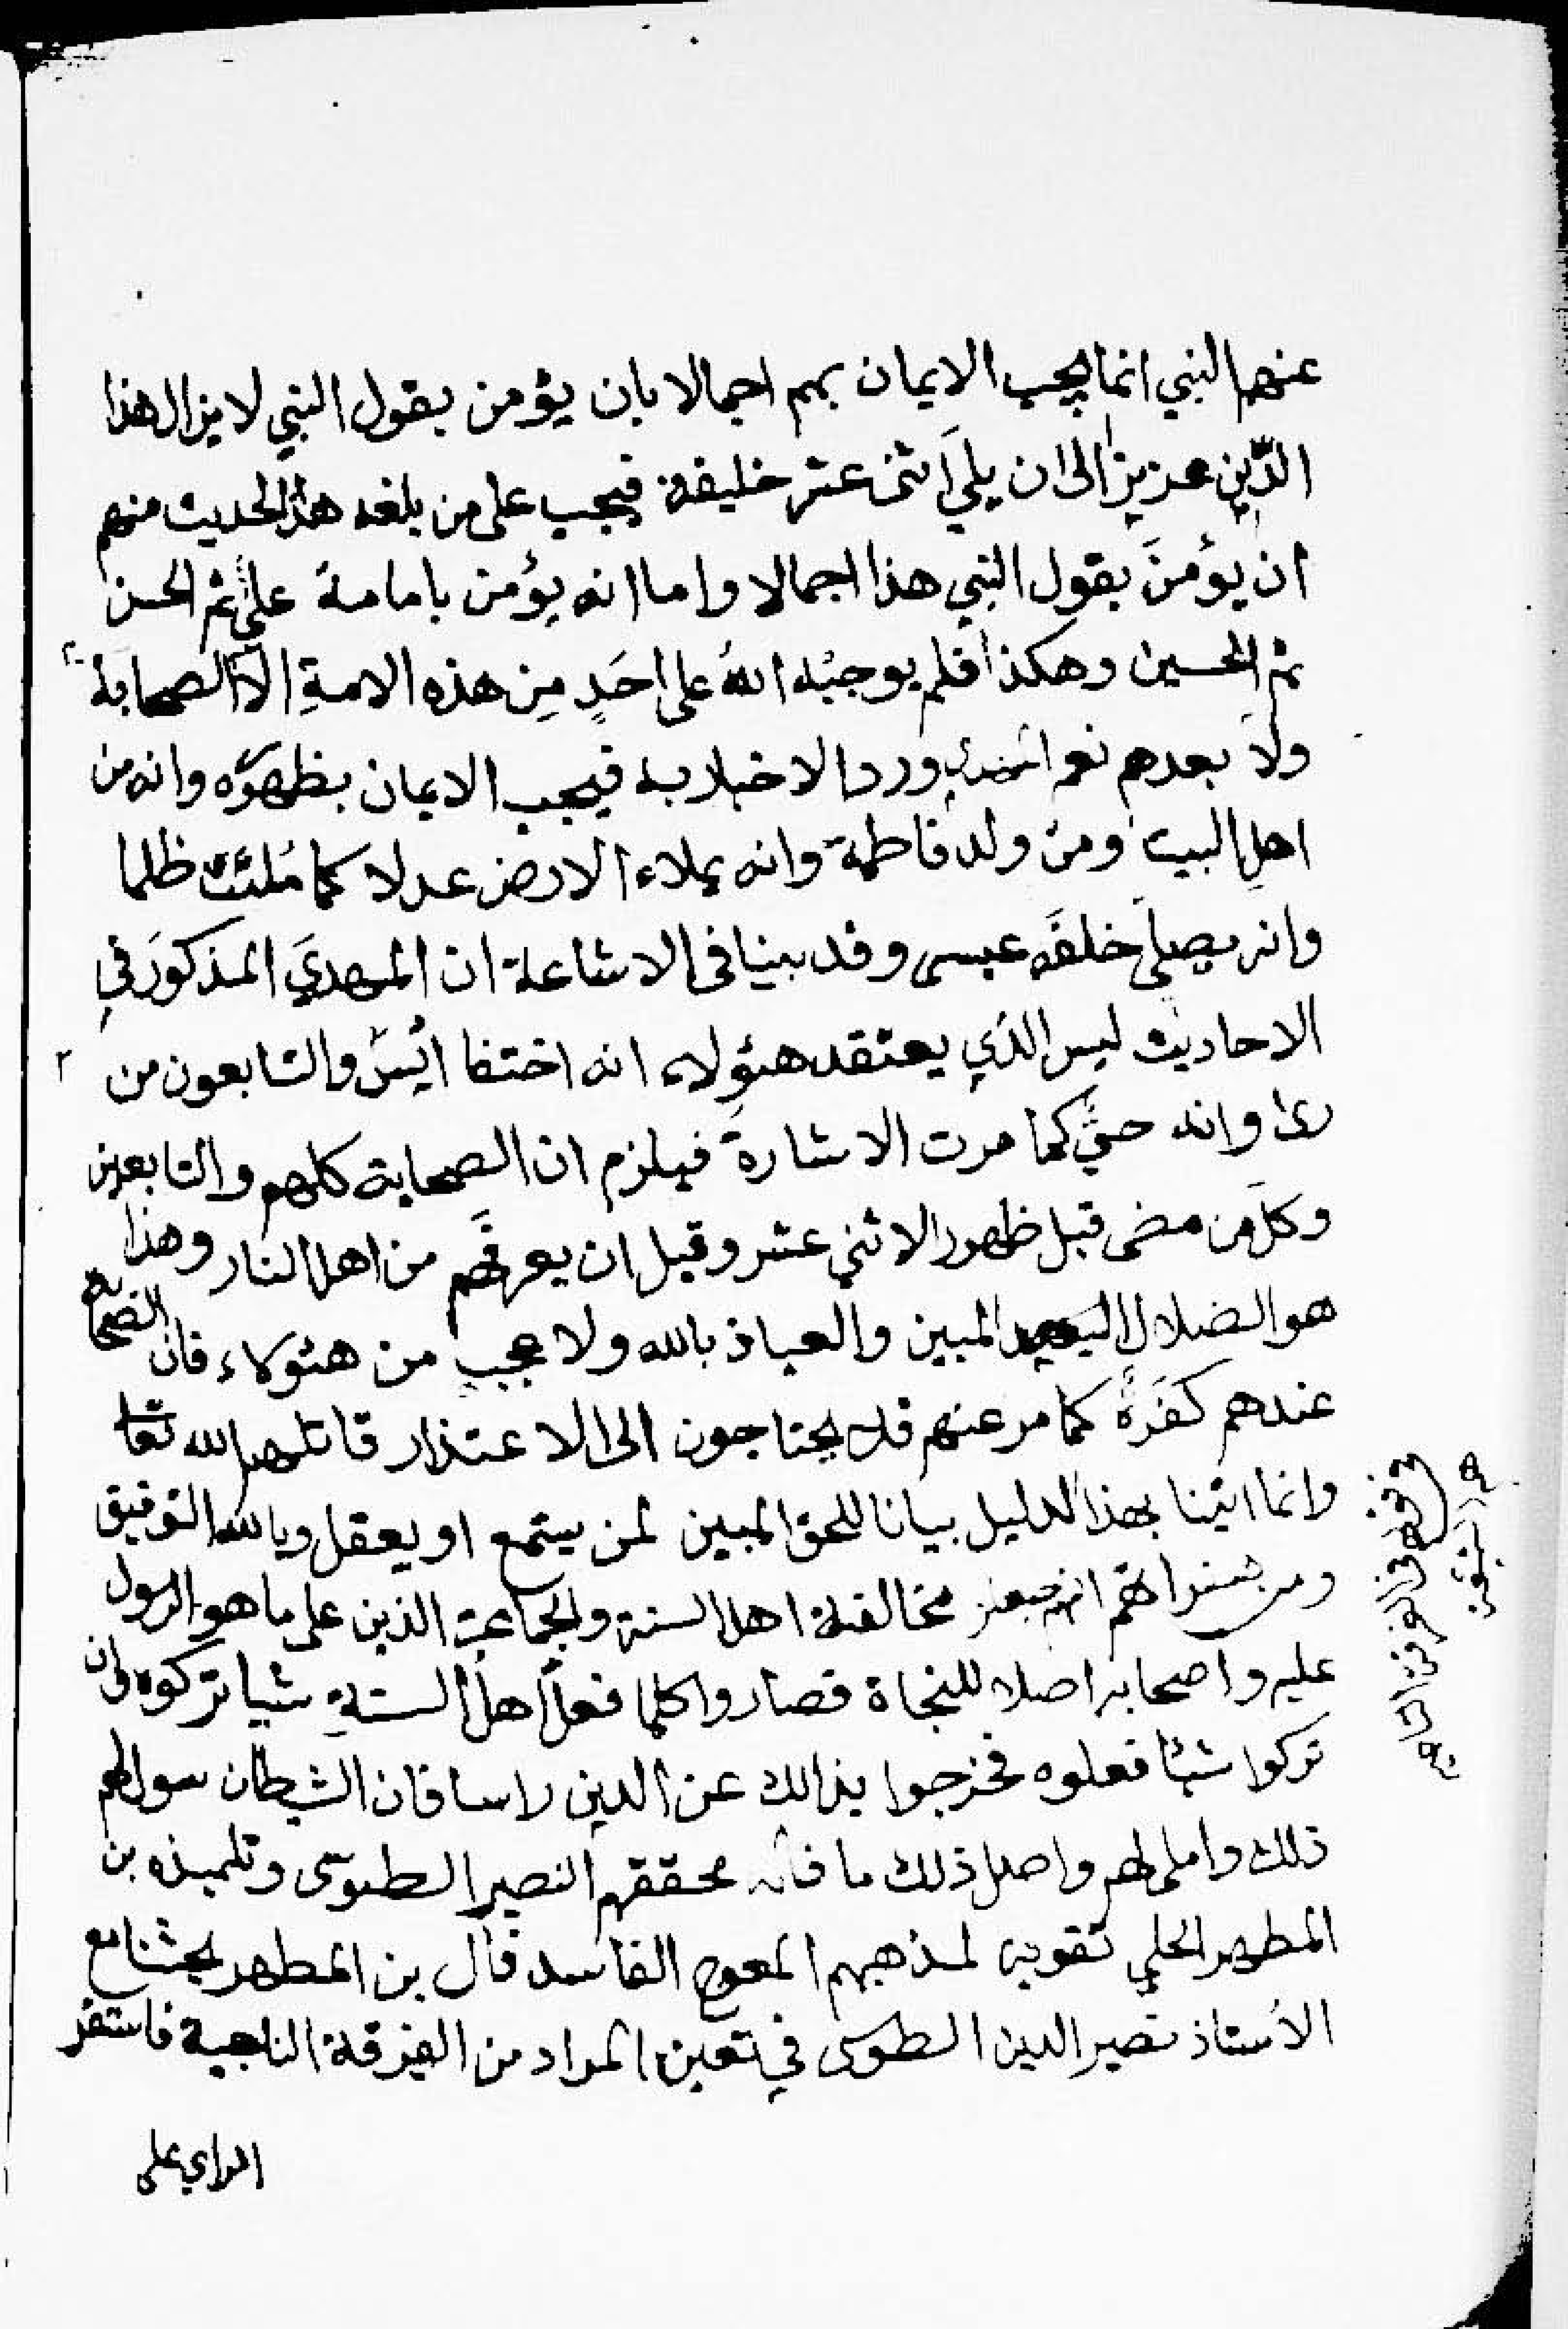 عنهم النبي انما يجب الايمان بهم اجمالا بان يؤمن بقول النبي لا يزال هذا
الدّين عزيزا الى ان يلي اثنى عشر خليفة فيجب على من بلغه هذا الحديث منهم
ان يؤمنَ بقول النبي هذا اجمالا واما انه يؤمن بامامة علي ثم الحسن
ثم الحسين وهكذا فلم يوجبْه اللهُ على احَدٍ مِن هذه الامةِ الا الصحابة
ولا بعدهم نعم ورد الاخبار به فيجب الايمان بظهوره وانه من
اهل البيت ومن ولد فاطمة وانه يملاء الارض عدلا كما مُلئت ظلما
وانه يصلي خلفَه عيسى وقد بينا فى الاشاعة ان المهديَ المذكورَ في
الاحاديث ليس الذي يعتقد هؤلاء انه اختفا والتابعون من
رئ وانه حيٌّ كما مرت الاشارة فيلزم ان الصحابة كلهم والتابعين
وكل من مضى قبل ظهور الاثني عشر وقبل ان يعرفهم من اهل النار وهذا
هو الضلال البعيد المبين والعياذ بالله ولا عجب من هئولاء فان الصحابة
عندهم كَفَرةٌ كما مر عنهم فلا يحتاجون الى الاعتذار قاتلهم الله تعا
وانما اتينا بهذا الدليل بيانا للحق المبين لمن يستمع او يعقل وبالله التوفيق
ومن انهم جعلوا مخالفة اهل السنة والجماعة الذين على ما هو الرسول
عليه واصحابه اصلا للنجاة فصاروا كلما فعل اهل السنةِ شيا تركوه وان
تركوا شيئا فعلوه فخرجوا بذالك عن الدين راسا فان الشيطان سول لهم
ذلك واملى لهم واصل ذلك ما قاله محققهم النصير الطوسى وتلميذه بن
المطهر الحلي تقوية لمذهبهم المعوج الفاسد قال بن المطهر بحثنا مع
الاستاذ نصير الدين الطوسى في تعين المراد من الفرقة الناجية فاستقر
الراي على